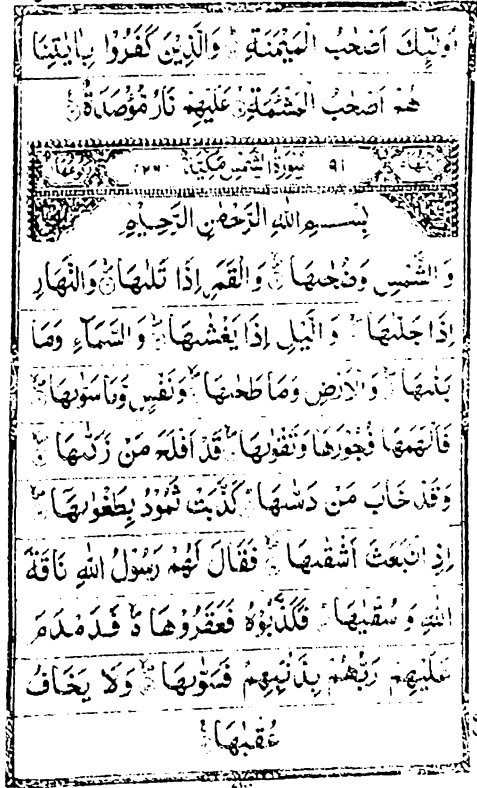 اُولٰٓئِكَ اَصْحٰبُ الْمَيْمَنَةِ وَالَّذِيْنَ كَفَرُوْا بِاٰيٰتِنَا
هُمْ اَصْحٰبُ الْمَشْـَٔمَةِ عَلَيْهِمْ نَارٌ مُّؤْصَدَةٌ
٩١ سُوْرَةُ الشَّمْسِ مَكِّيَّةٌ ٢٦
بِسْـــمِ اللهِ الرَّحْمٰنِ الرَّحِيْمِ
وَالشَّمْسِ وَضُحٰىهَا وَالْقَمَرِ اِذَا تَلٰىهَا وَالنَّهَارِ
اِذَا جَلّٰىهَا وَالَّيْلِ اِذَا يَغْشٰىهَا وَالسَّمَآءِ وَمَا
بَنٰىهَا وَالْاَرْضِ وَمَا طَحٰىهَا وَنَفْسٍ وَّمَا سَوّٰىهَا
فَاَلْهَمَهَا فُجُوْرَهَا وَتَقْوٰىهَا قَدْ اَفْلَحَ مَنْ زَكّٰىهَا
وَقَدْ خَابَ مَنْ دَسّٰىهَا كَذَّبَتْ ثَمُوْدُ بِطَغْوٰىهَآ
اِذِ انْۢبَعَثَ اَشْقٰىهَا فَقَالَ لَهُمْ رَسُوْلُ اللهِ نَاقَةَ
اللهِ وَسُقْيٰهَا فَكَذَّبُوْهُ فَعَقَرُوْهَا فَدَمْدَمَ
عَلَيْهِمْ رَبُّهُمْ بِذَنْۢبِهِمْ فَسَوّٰىهَا وَلَا يَخَافُ
عُقْبٰهَا